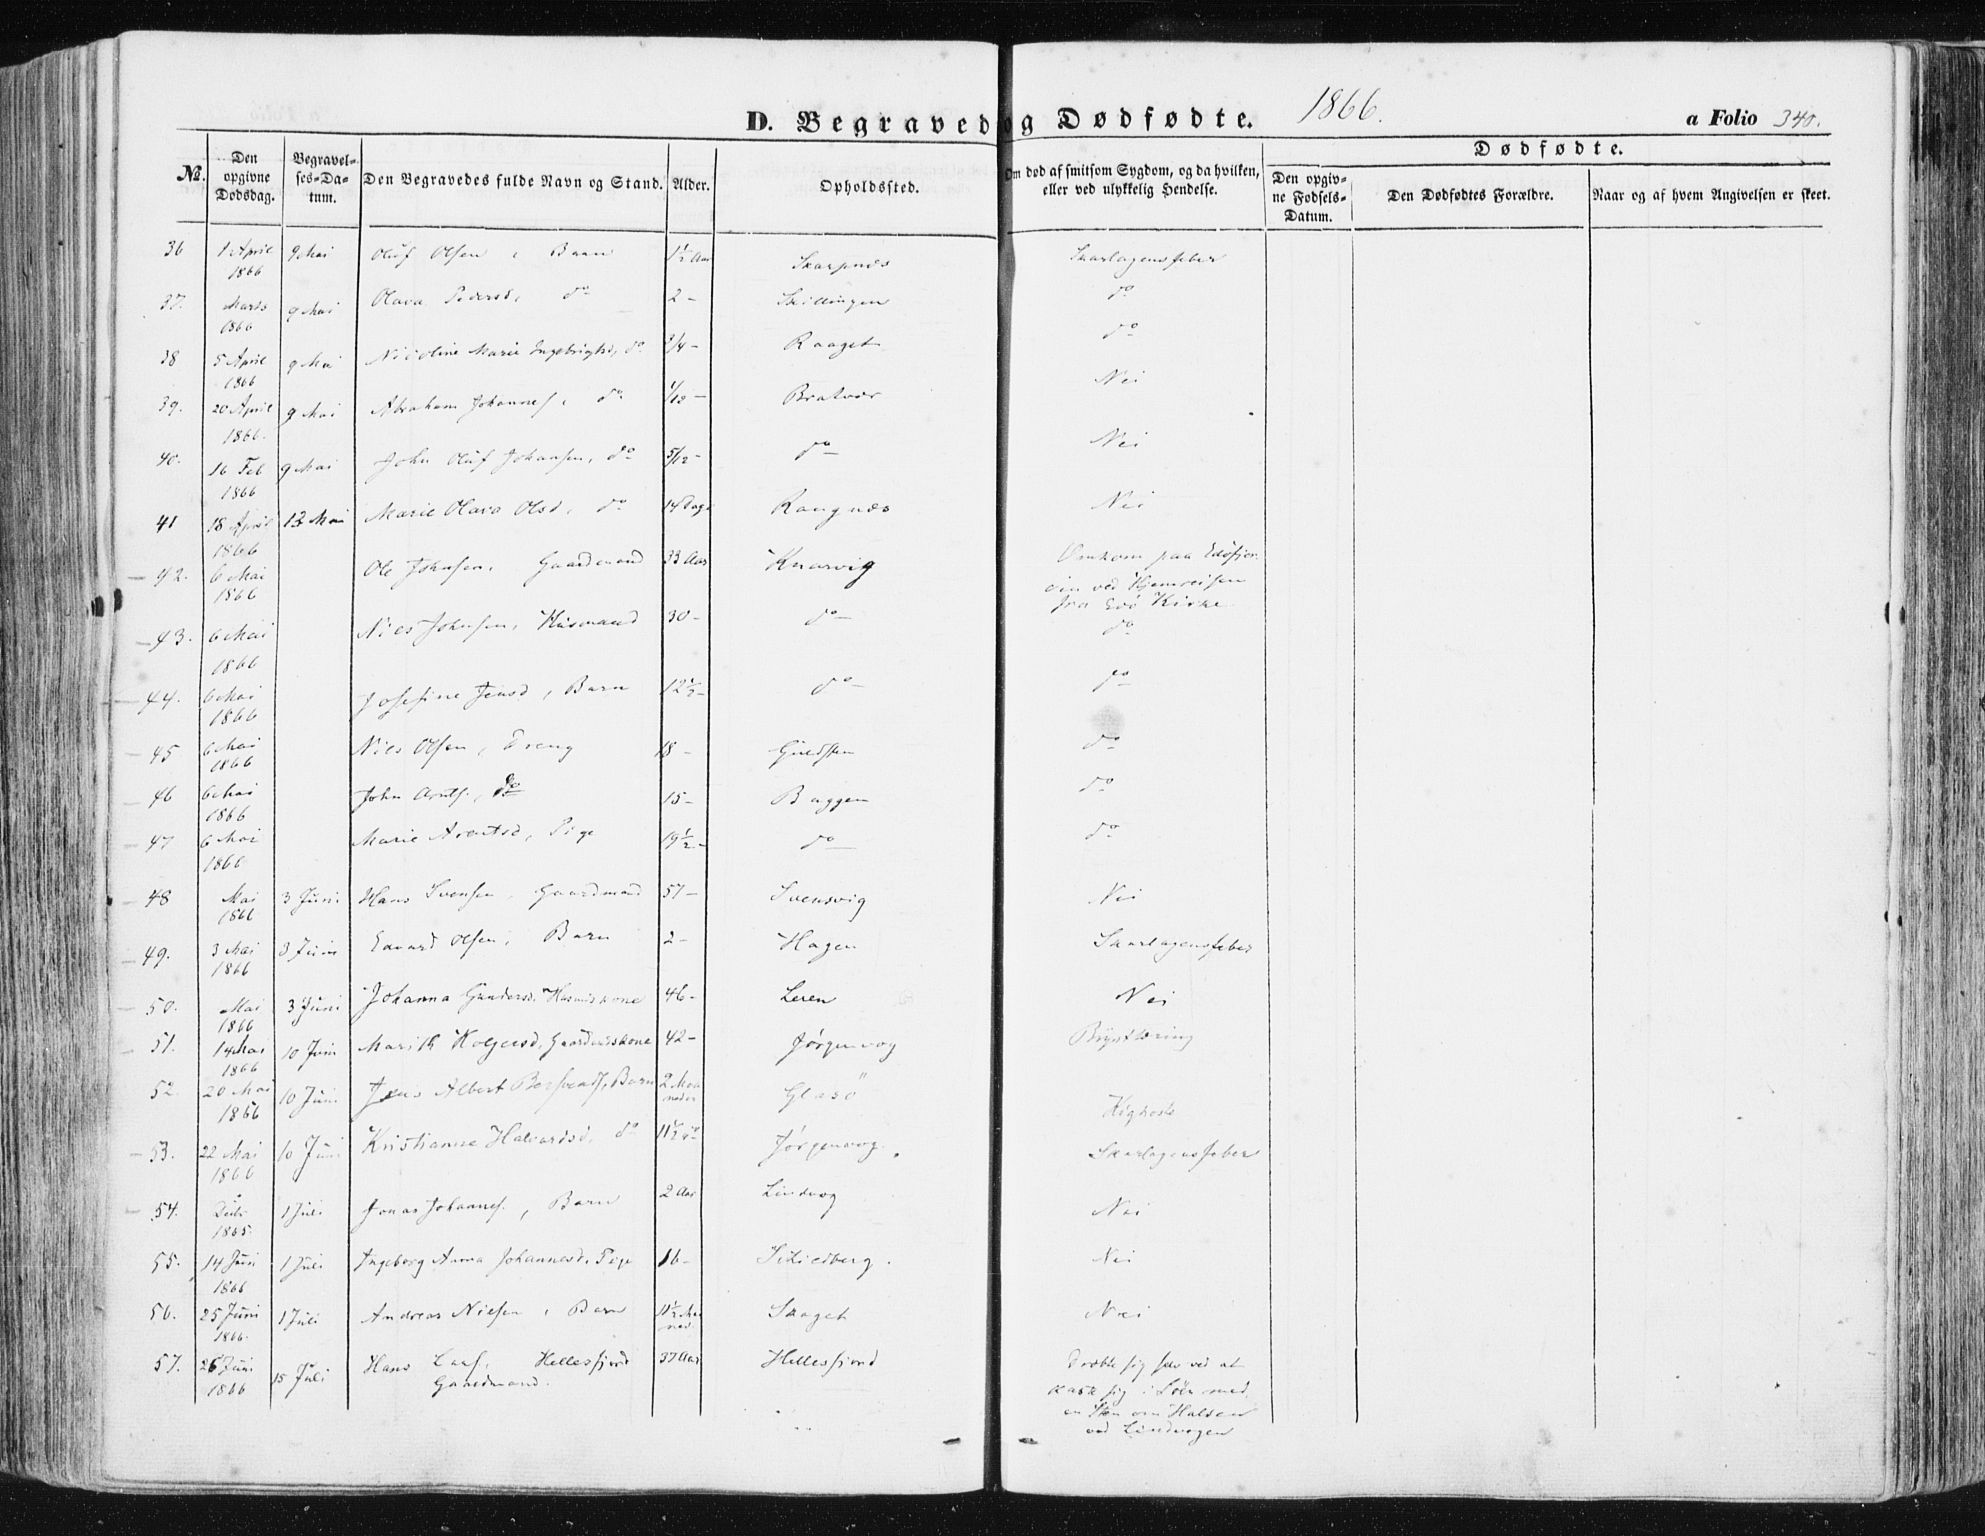 D. Begravede og Dødfødte. 1866. a Folio 340.
Dødfødte.
№. Den opgivne Dødsdag. Begravelses-Datum. Den Begravedes fulde Navn og Stand. Alder. Opholdssted. Om død af smitsom Sygdom, og da hvilken, eller ved ulykkelig Hendelse. Den opgivne Fødsels-Datum. Den Dødfødtes Forældre. Naar og af hvem Angivelsen er skeet.
36 1 April 1866 9 Mai Oluf Olsen, Barn 1½ Aar Skarpnæs Skarlagensfeber
37. Marts 1866 9 Mai Olava Pedersd, do 2 - Skillingen do
38 5 April 1866 9 Mai Nicoline Marie Ingebrigtsd, do 3/4 - Raaget do
39. 20 April 1866. 9 Mai Abraham Johannes, do 1/12 - Bratvær Nei
40. 16 Feb 1866 9 Mai John Oluf Johansen, do 5/12 - do Nei
41 18 April 1866 13 Mai Marie Olava Olsd, do 14 Dage Rangnæs Nei
42. 6 Mai 1866 Ole Johnsen, Gaardmand 33 Aar Knarvig Omkom paa Edøfjor-
den ved Hjemreisen
fra Edø Kirke
43. 6 Mai 1866 Niels Johnsen, Husmand 30 - do do
44. 6 Mai 1866 Josefine Jensd, Barn 12½ - do do
45 6 Mai 1866 Niels Olsen, Dreng 18 - Guldsten do
46 6 Mai 1866 John Arnts., do 15 - Buggen do
47 6 Mai 1866 Marie Arntsd, Pige 19½ - do do
48 Mai 1866 3 Juni Hans Svensen, Gaardmand 57 - Svensvig Nei
49. 3 Mai 1866 3 Juni Edvard Olsen, Barn 2 - Hagen Skarlagensfeber
50. Mai 1866 3 Juni Johanna Gundersd. Husmdskone 46 - Leren Nei
51. 14 Mai 1866 10 Juni Marith Holgersd, Gaardmdskone 42 - Jørgenvog Brysttæring
52. 20 Mai 1866 10 Juni Jens Albert, Barn 2 Maaneder Glasø Kighoste
53. 22 Mai 1866 10 Juni Kristianne Halvardsd, do 11½ do Jørgenvog. Skarlagensfeber
54. 1865. 1 Juli Jonas Johannes., Barn 2 Aar Lindvog Nei
55. 14 Juni 1866 1 Juli Ingeborg Anna Johannesd, Pige 16 - Nei
56. 25 Juni 1866. 1 Juli Andreas Nielsen, Barn 11½ Maaned Skaget Nei
57. 26 Juni 1866 15 Juli Hans Hellesfjord 37 Aar Hellesfjord Dræbte sig selv ved at
Gaardmand. kaste sig i Søen med
en Sten om Halsen
ved Lindvogen